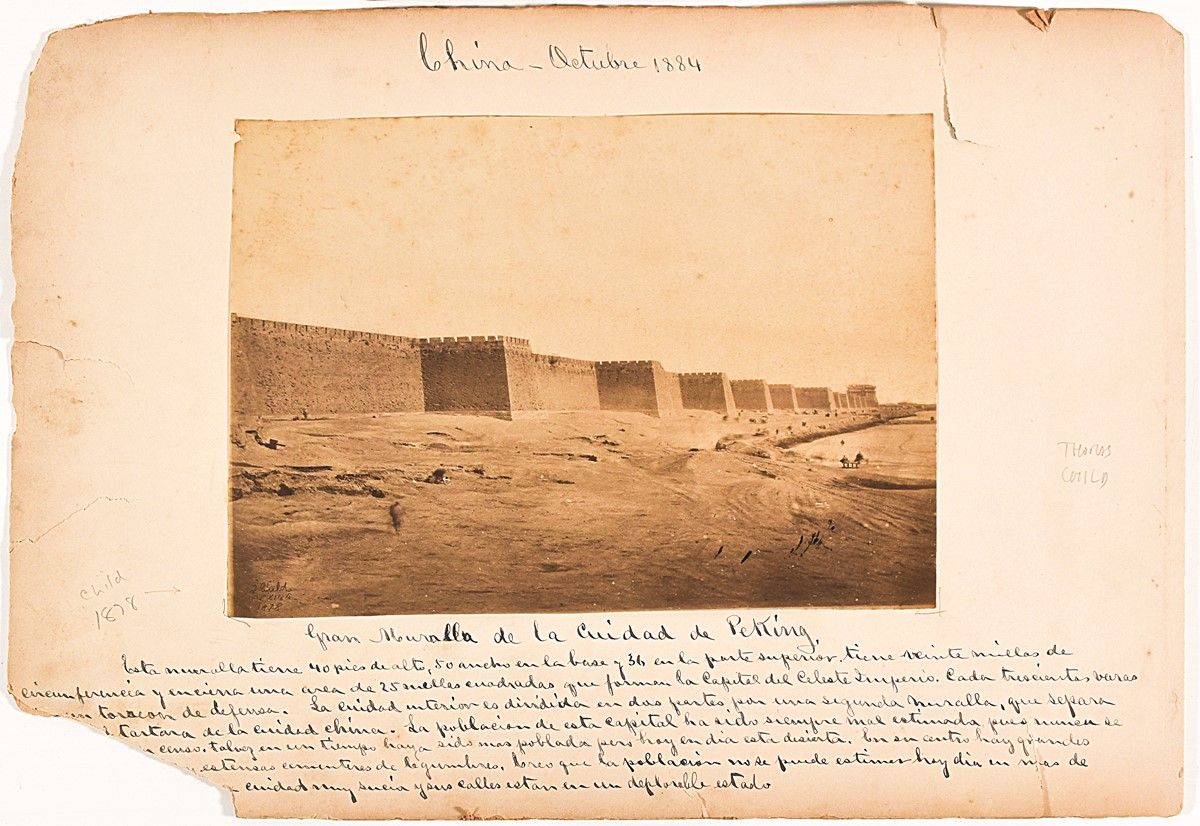 China - Octubre 1884
THOMAS
CHILD
Child
1878
T. Child
1878
Gran Muralla de la Cuidad de PeKing,
Esta muralla tiene 40 pies de alto, 50 ancho en la base y 36 en la parte superior, tiene veinte millas de
circunferencia y encierra una area de 25 millas cuadradas que forman la Capital del Celeste Imperio. Cada trescientas varas
un torreon de defensa. La cuidad interior es dividida en dos partes, por una segunda muralla, que separa
tartara de la cuidad china. La poblacion de esta capital ha sido siempre mal estimada pues nunca se
censo. talvez en un tiempo haya sido mas poblada pero hoy en dia esta desierta. En su centro hay grandes
y estensas de legumbres. Creo que la poblacion no se puede estimar hoy dia en mas de
cuidad muy sucia y sus calles estan en un deplorable estado